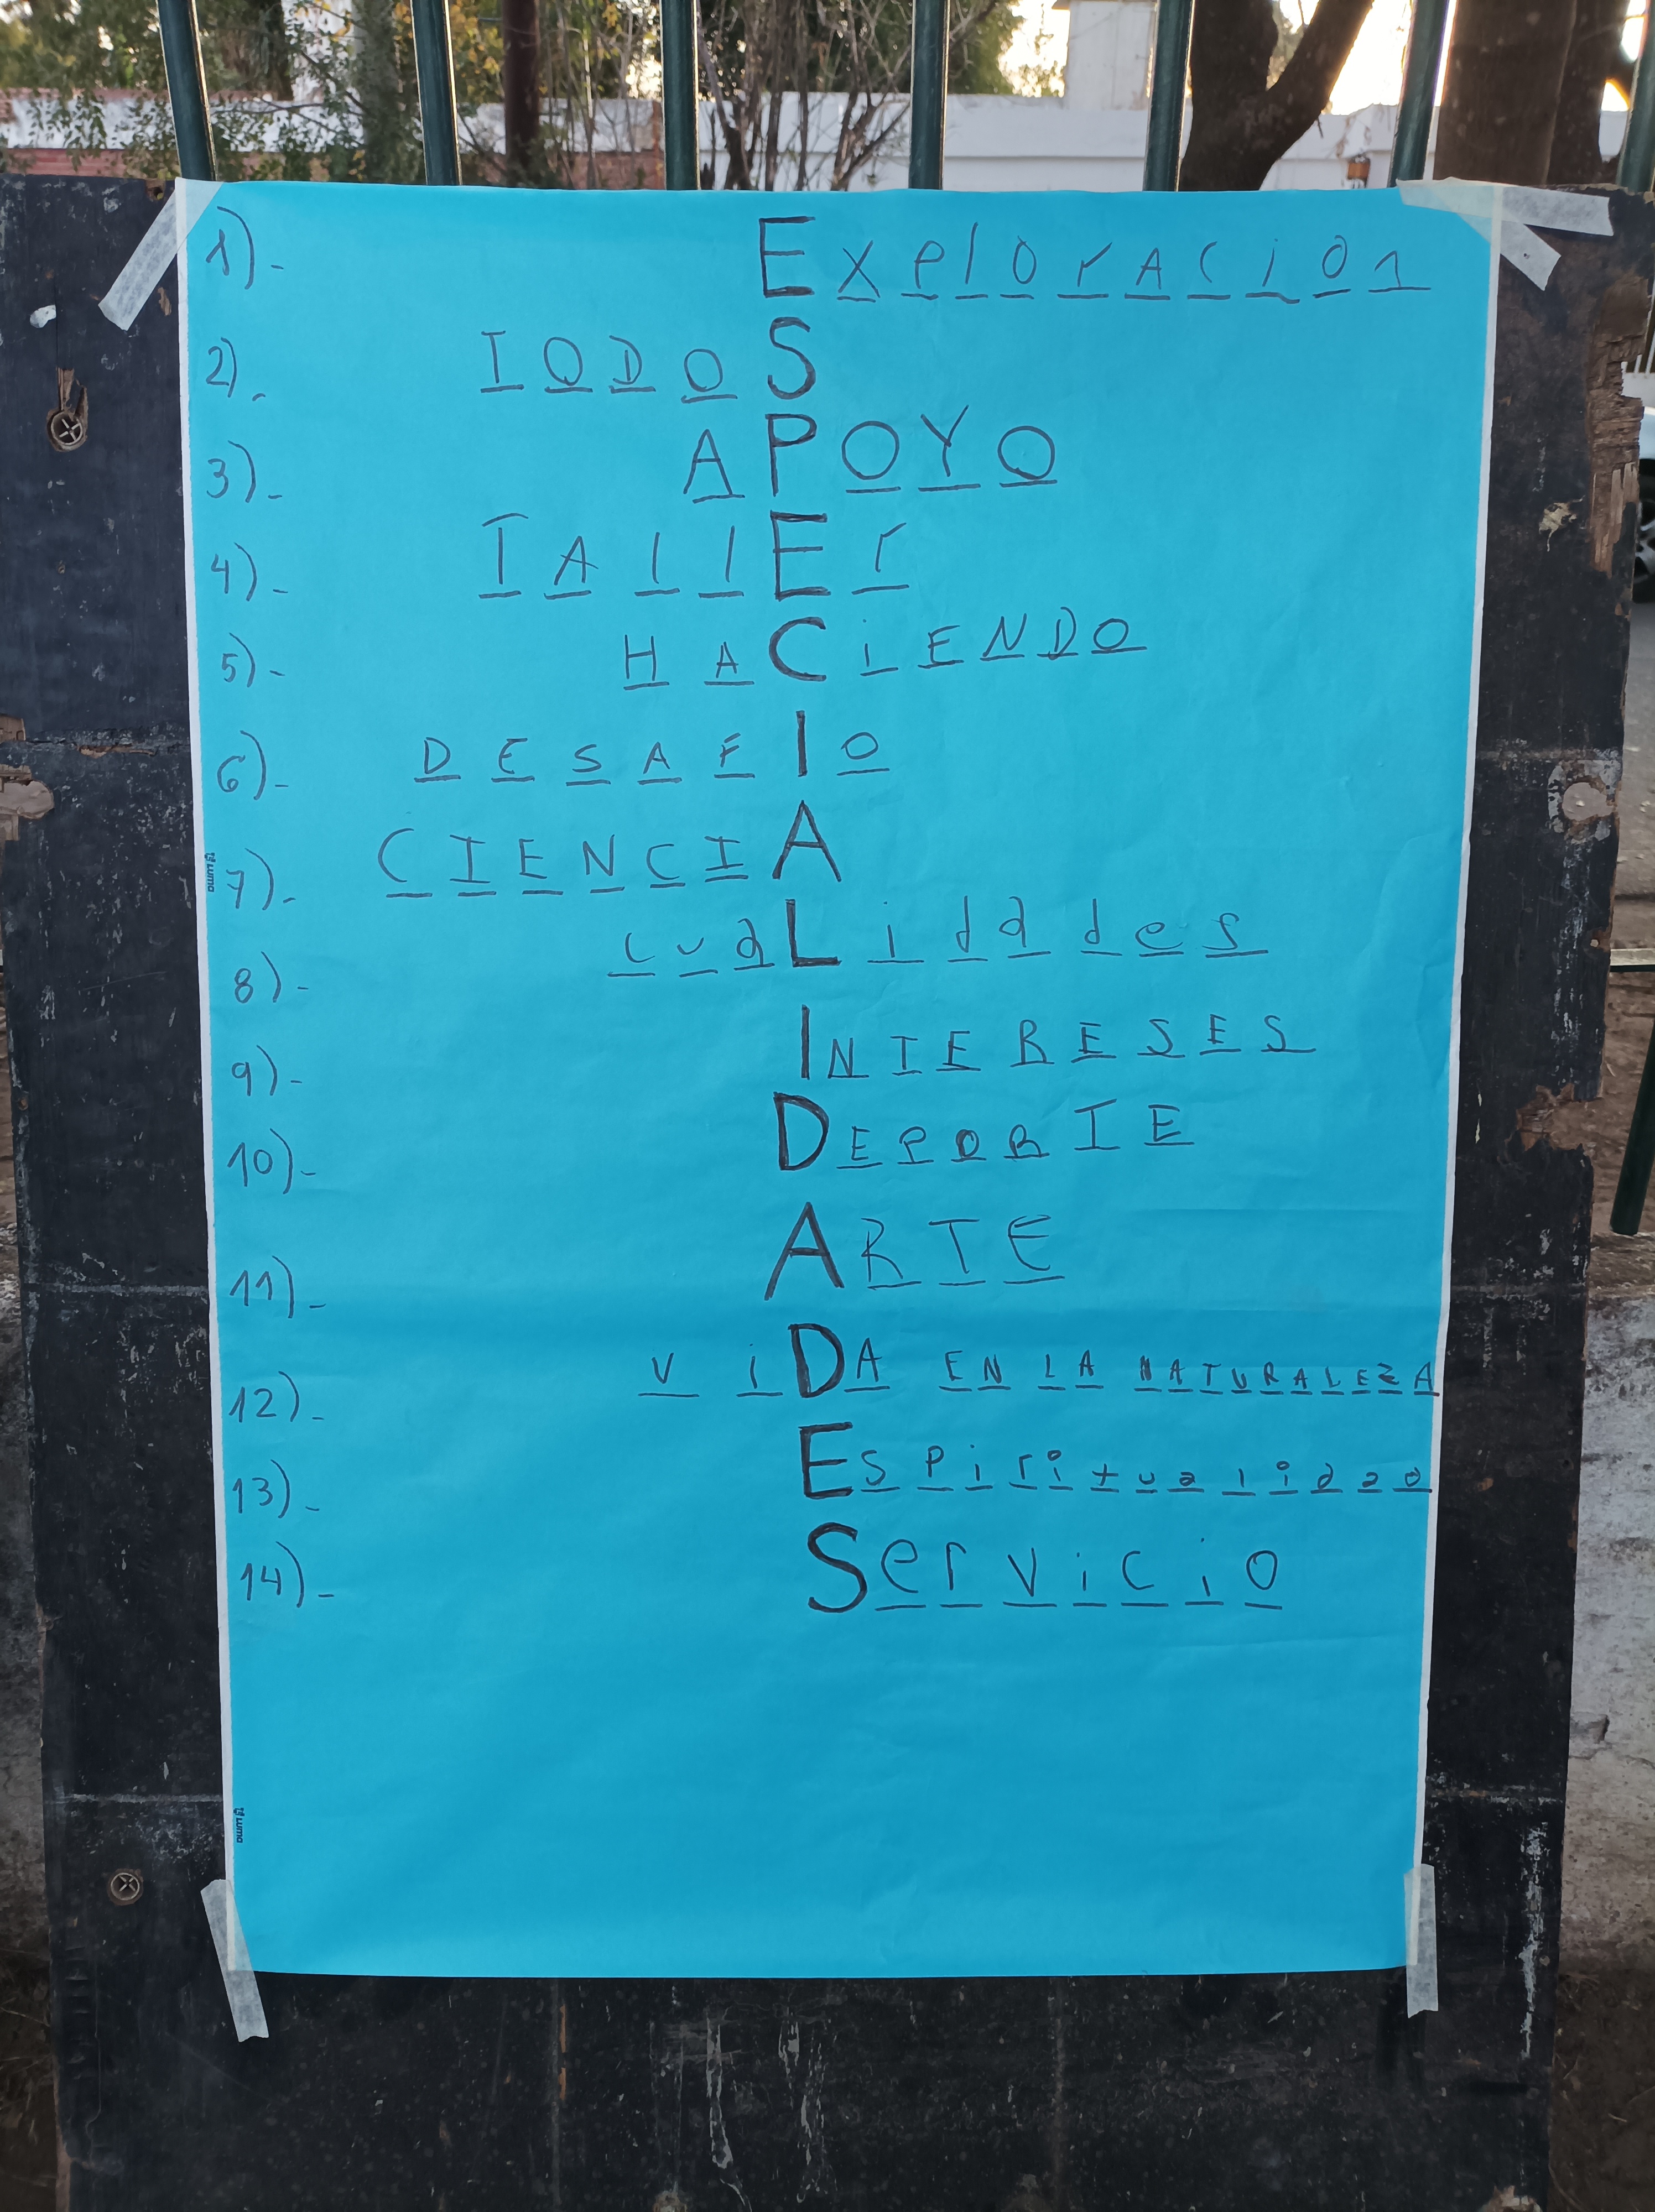 1)- Exploracion
2)- TODOS
3)- APOYO
4)- TAllEr
5)- HACiENDO
6)- DESAFIo
7)- CIENCIA
8)- cuaLidades
9)- INTERESES
10)- DEPORTE
11)- ARTE
12)- ViDA EN LA NATURALEZA
13)- Espiritualidad
14)- Servicio
Luma
Luma